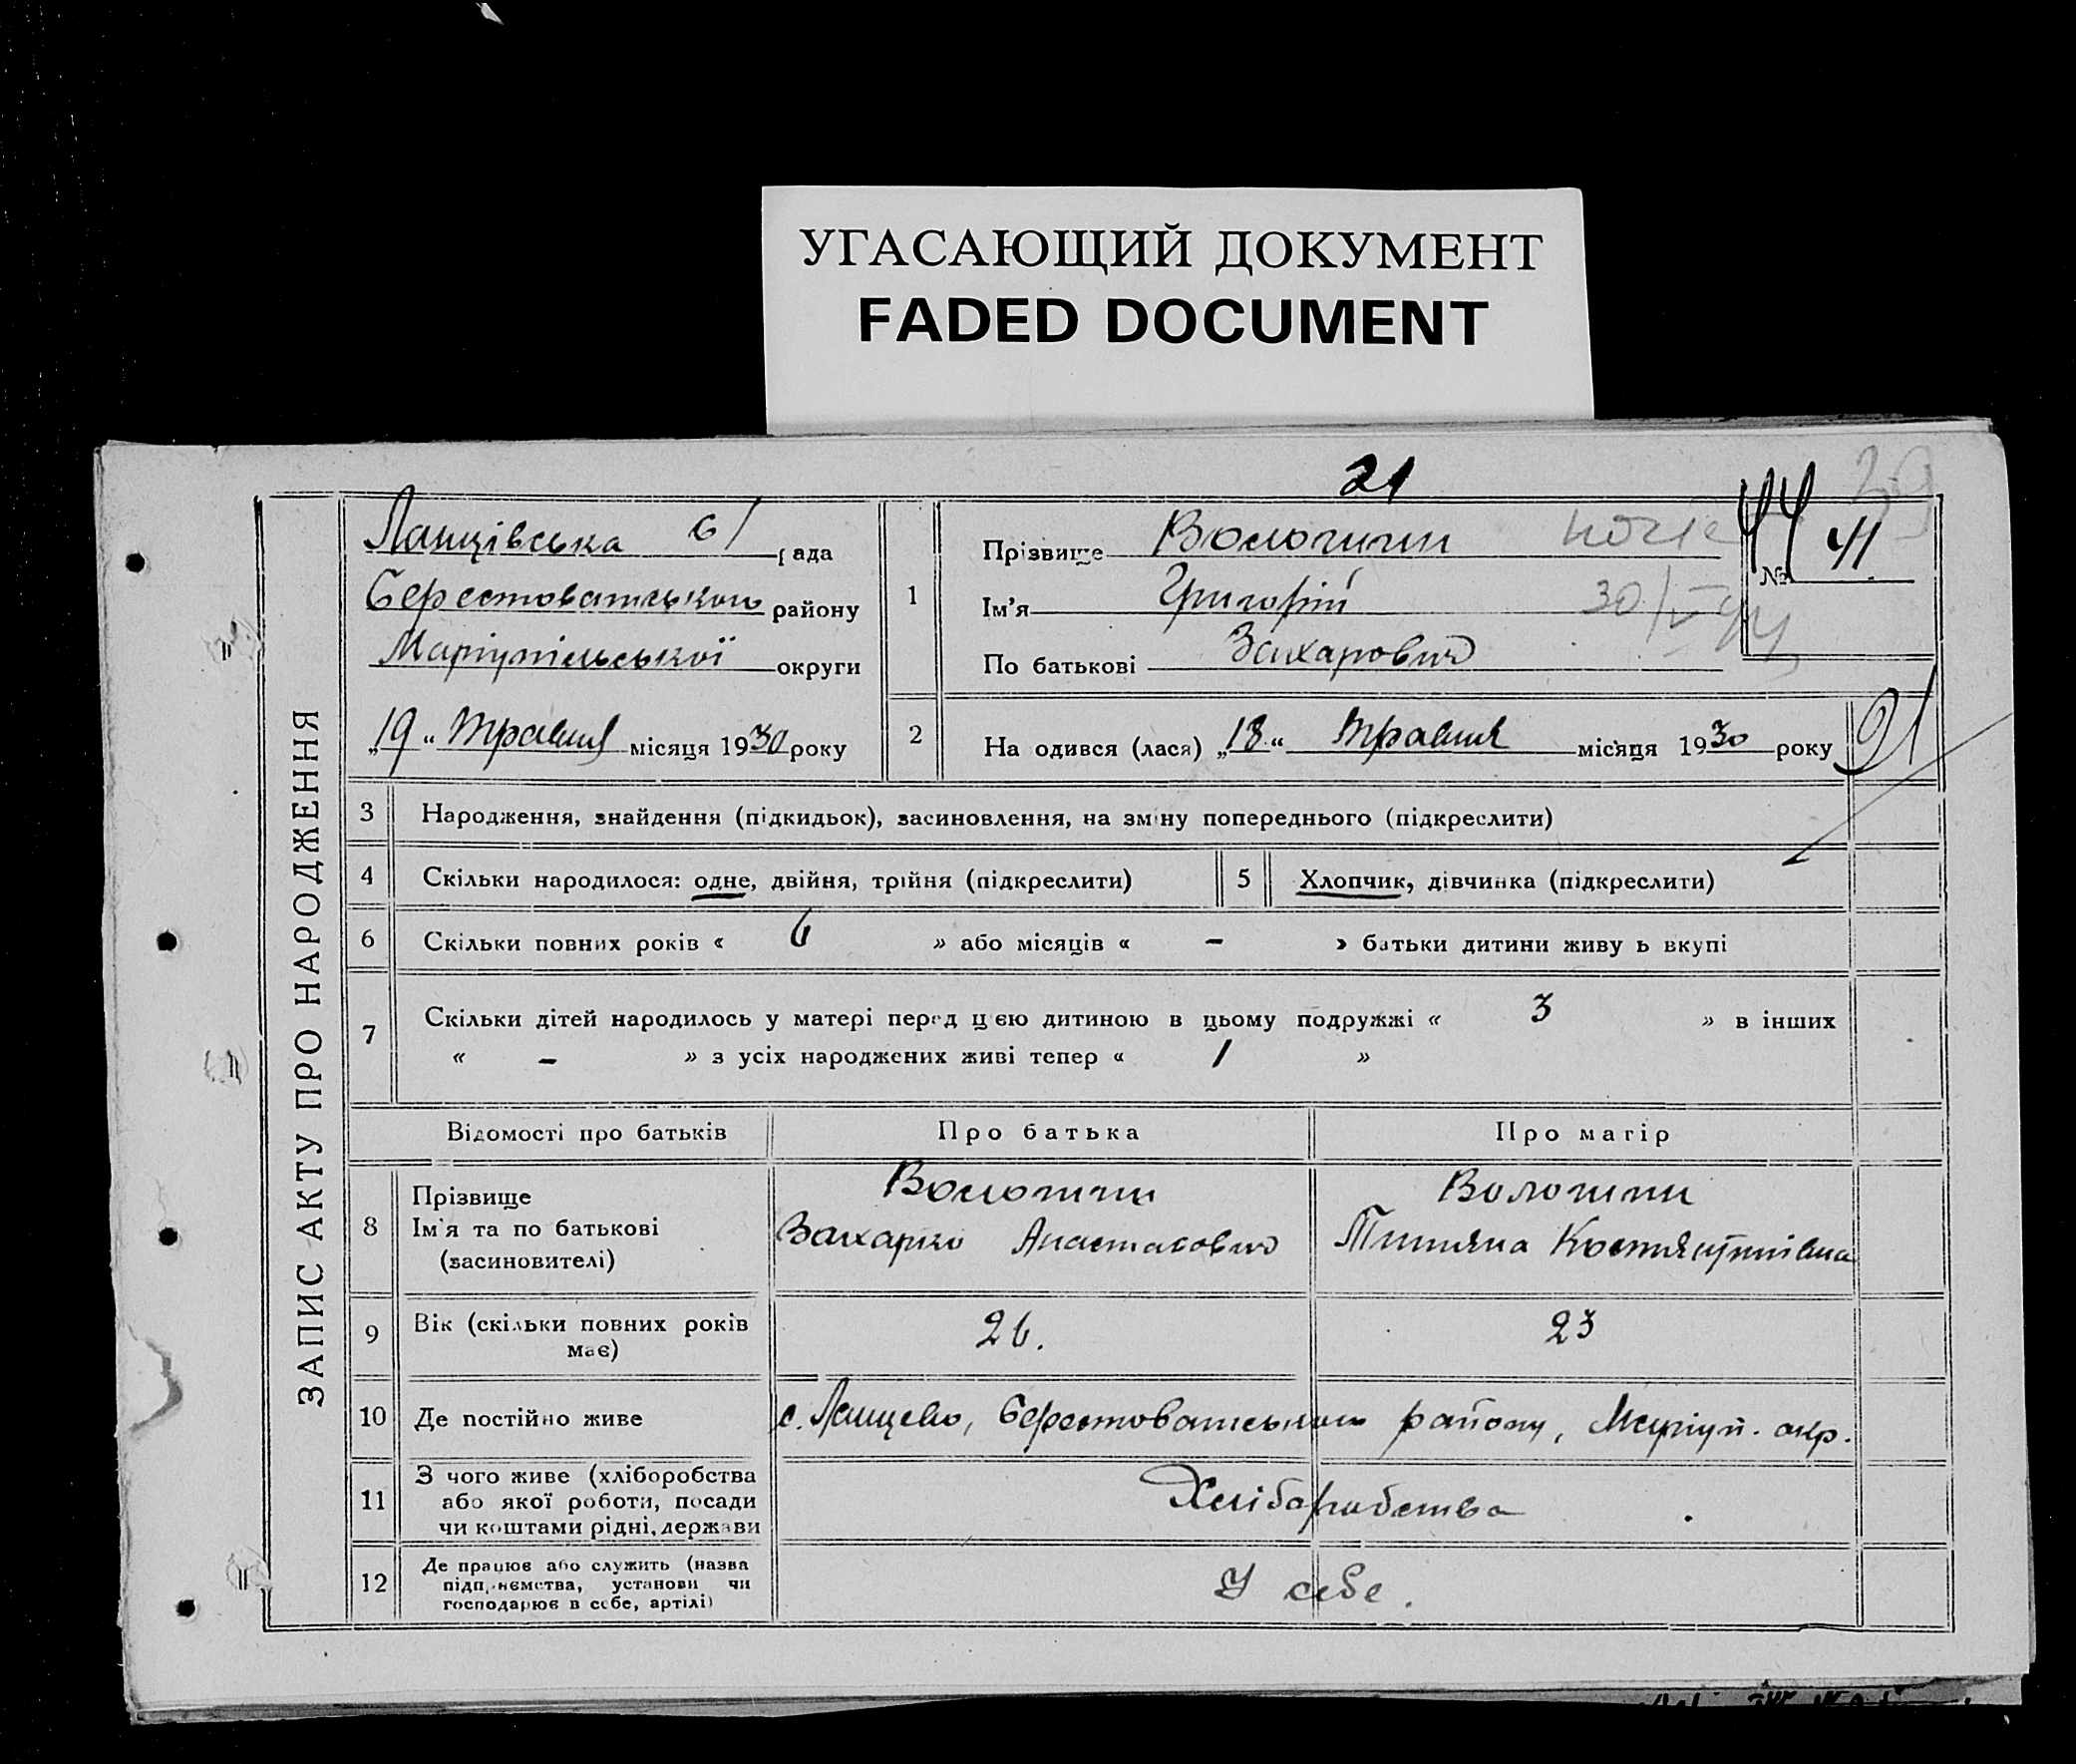 УГАСАЮЩИЙ ДОКУМЕНТ
FADED DOCUMENT
21
29
44
ЗАПИС АКТУ ПРО НАРОДЖЕННЯ
рада
Берестоватського району
Маріупільської округи
„19“ травня місяця 1930 року
1
Прізвище Волочини
Ім'я Григорій
30/V
По батькові Захарович
№ 41
2
На одився (лася) „18“ травня місяця 1930 року
91
3 Народження, знайдення (підкидьок), засиновлення, на зміну попереднього (підкреслити)
4 Скільки народилося: одне, двійня, трійня (підкреслити)
5 Хлопчик, дівчинка (підкреслити)
6 Скільки повних років « 6 » або місяців « - » батьки дитини живу ь вкупі
7 Скільки дітей народилось у матері перед цією дитиною в цьому подружжі « 3 » в інших
« - » з усіх народжених живі тепер « 1 »
Відомості про батьків
Про батька
Про матір
8
Прізвище
Ім'я та по батькові
(засиновителі)
Волочини
Захарко Анастасович
Волочини
Титяна Костянтинівна
9
Вік (скільки повних років
має)
26.
23
10 Де постійно живе
с. Ланцево, Берестоватського району, Маріуп. окр.
11
З чого живе (хліборобства
або якої роботи, посади
чи коштами рідні, держави
Хліборобства
12
Де працює або служить (назва
підприємства, установи чи
господарює в себе, артілі)
У себе.